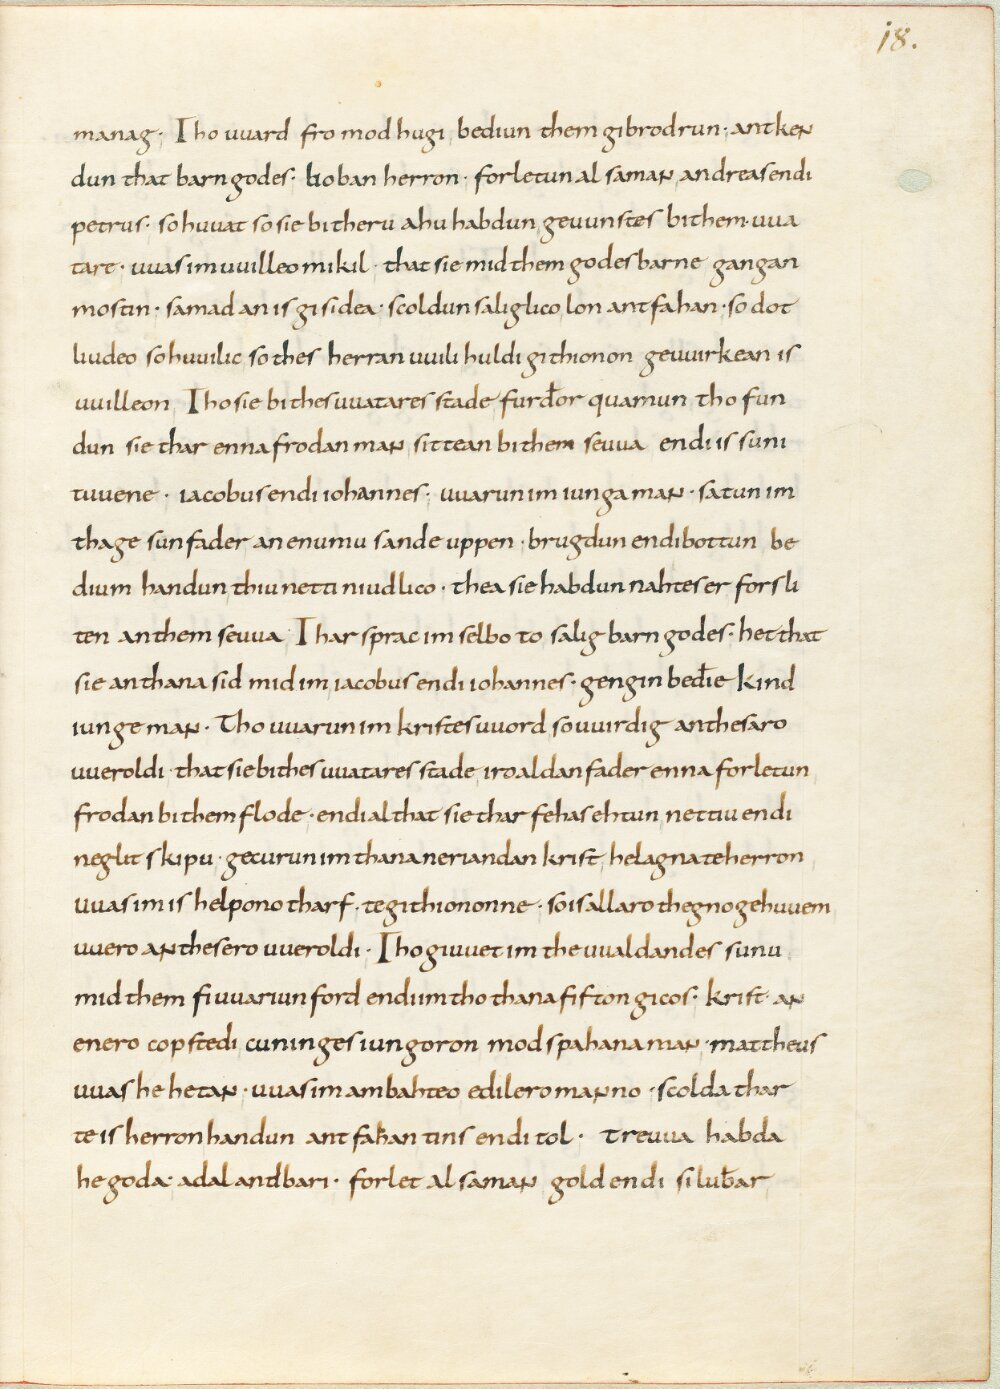 18.
manag · Tho uuard fro mod hugi bediun them gibrodrun · antken
dun that barn godes · lioban herron · forletun al saman andreas endi
petrus · so huuat so sie bi theru ahu habdun geuunstes bi them uua
tare · uuas im uuilleo mikil · that sie mid them godes barne gangan
mostin · samad an is gisidea · scoldun saliglico lon antfahan · so dot
liudeo so huuilic so thes herran uuili huldi githionon geuuirkean is
uuilleon Tho sie bi thes uuatares stade furđor quamun tho fun
dun sie thar enna frodan man sittean bi them seuua endi is suni
tuuene · iacobus endi iohannes · uuarun im iunga man · satun im
tha gesunfader an enumu sande uppen · brugdun endi bottun be
dium handun thiu netti niudlico · thea sie habdun nahtes er forsli
ten an them seuua Thar sprac im selbo to salig barn godes · het that
sie an thana sid mid im iacobus endi iohannes · gengin beđie kind
iunge man · Tho uuarun im kristes uuord so uuirdig an thesaro
uueroldi · that sie bi thes uuatares stade iro aldan fader enna forletun
frodan bi them flode · endi al that sie thar fehas ehtun nettiu endi
neglit skipu · gecurun im thana neriandan krist helagna te herron
uuas im is helpono tharf · te githiononne · so is allaro thegno gehuuem
uuero an thesero uueroldi · Tho giuuet im the uualdandes sunu
mid them fiuuariun ford endi im tho thana fifton gicos · krist an
enero copstedi cuninges iungoron modspahana man · mattheus
uuas he hetan · uuas im ambahteo edilero manno · scolda thar
te is herron handun antfahan tins endi tol · treuua habda
he goda · adalandbari · forlet al saman gold endi siluƀar